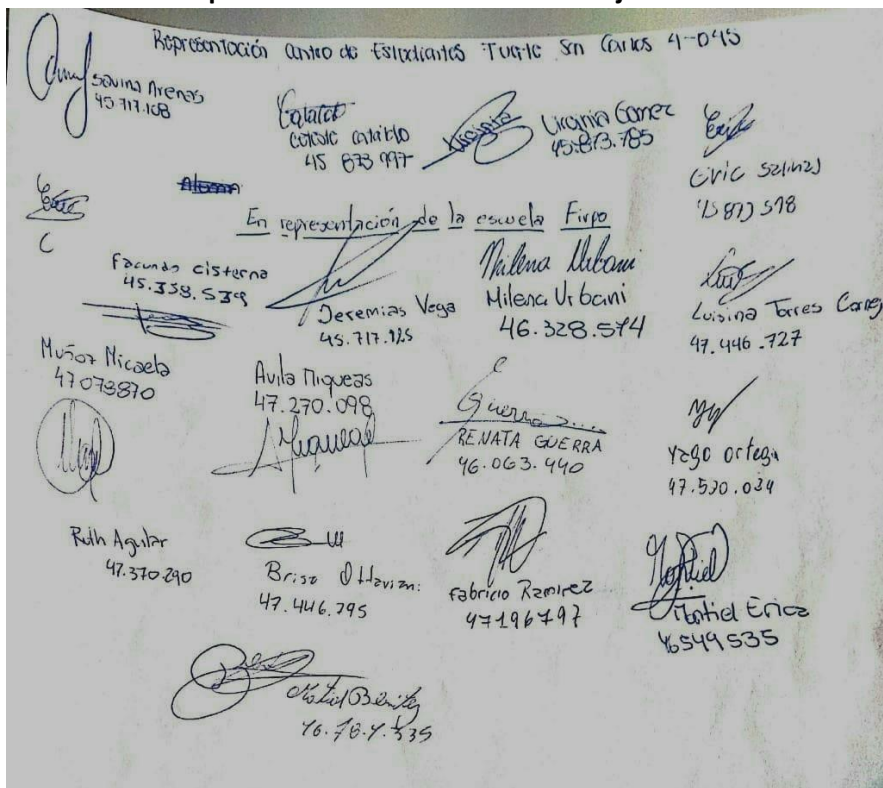 Representación Centro de Estudiantes Tuc-Tc San Carlos 4-045
Savina Arenas
45.717.108
Cataldo
45 873 997
Virginia
Virginia Gomez
45.873.785
Eric Salinas
En representación de la escuela Firpo
Facundo Cisterna
45.338.539
Jeremias Vega
45.717.125
Milena Urbani
Milena Urbani
46.328.574
Luisina Torres
47.446.727
Muñoz Micaela
47073870
Avila Miqueas
47.270.098
Miqueas
Guerra
RENATA GUERRA
46.063.440
Yago Ortega
47.520.034
Ruth Aguilar
47.370.290
Brisa Ottaviani
47.446.795
Fabricio Ramirez
47196797
Montiel
Montiel Erica
46549535
Benitez